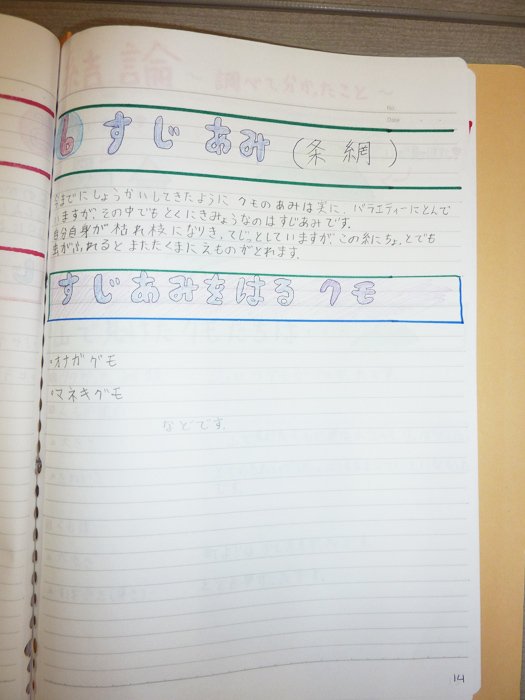 結論 ～調べて分かったこと～
No.
Date
6 すじあみ (条網)
今までにしょうかいしてきたように クモのあみは実に、バラエティーにとんで
いますが、その中でもとくにきみょうなのはすじあみです。
自分自身が枯れ枝になりきって、じっとしていますが、この糸にちょっとでも
虫がふれるとまたたくまにえものがとれます。
すじあみをはるクモ
・オナガグモ
・マネキグモ
などです。
14